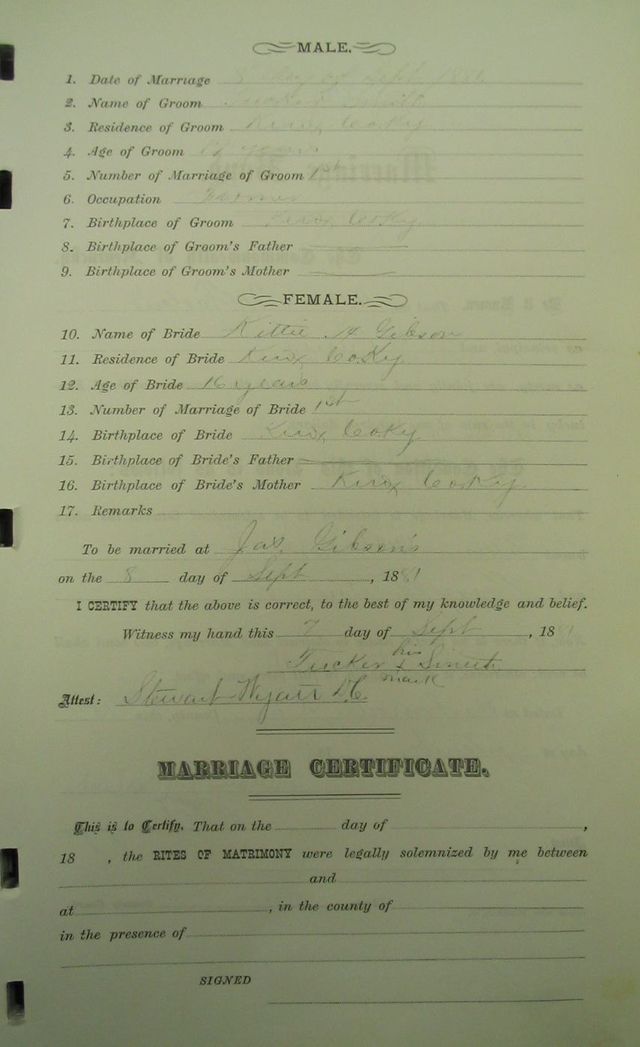 MALE.
1. Date of Marriage 8 day of Sept 1881
2. Name of Groom Tucker Smith
3. Residence of Groom Knox Co Ky
4. Age of Groom years
5. Number of Marriage of Groom 1st
6. Occupation Farmer
7. Birthplace of Groom Knox Co Ky
8. Birthplace of Groom's Father
9. Birthplace of Groom's Mother
FEMALE.
10. Name of Bride Kittie A Gibson
11. Residence of Bride Knox Co Ky
12. Age of Bride 16 years
13. Number of Marriage of Bride 1st
14. Birthplace of Bride Knox Co Ky
15. Birthplace of Bride's Father
16. Birthplace of Bride's Mother Knox Co Ky
17. Remarks
To be married at Jas. Gibson's
on the 8 day of Sept, 1881
I CERTIFY that the above is correct, to the best of my knowledge and belief.
Witness my hand this 7 day of Sept, 1881
Tucker his x mark Smith
Attest: Stewart Wyatt D.C.
MARRIAGE CERTIFICATE.
This is to Certify. That on the day of ,
18 , the RITES OF MATRIMONY were legally solemnized by me between
and
at , in the county of
in the presence of
SIGNED